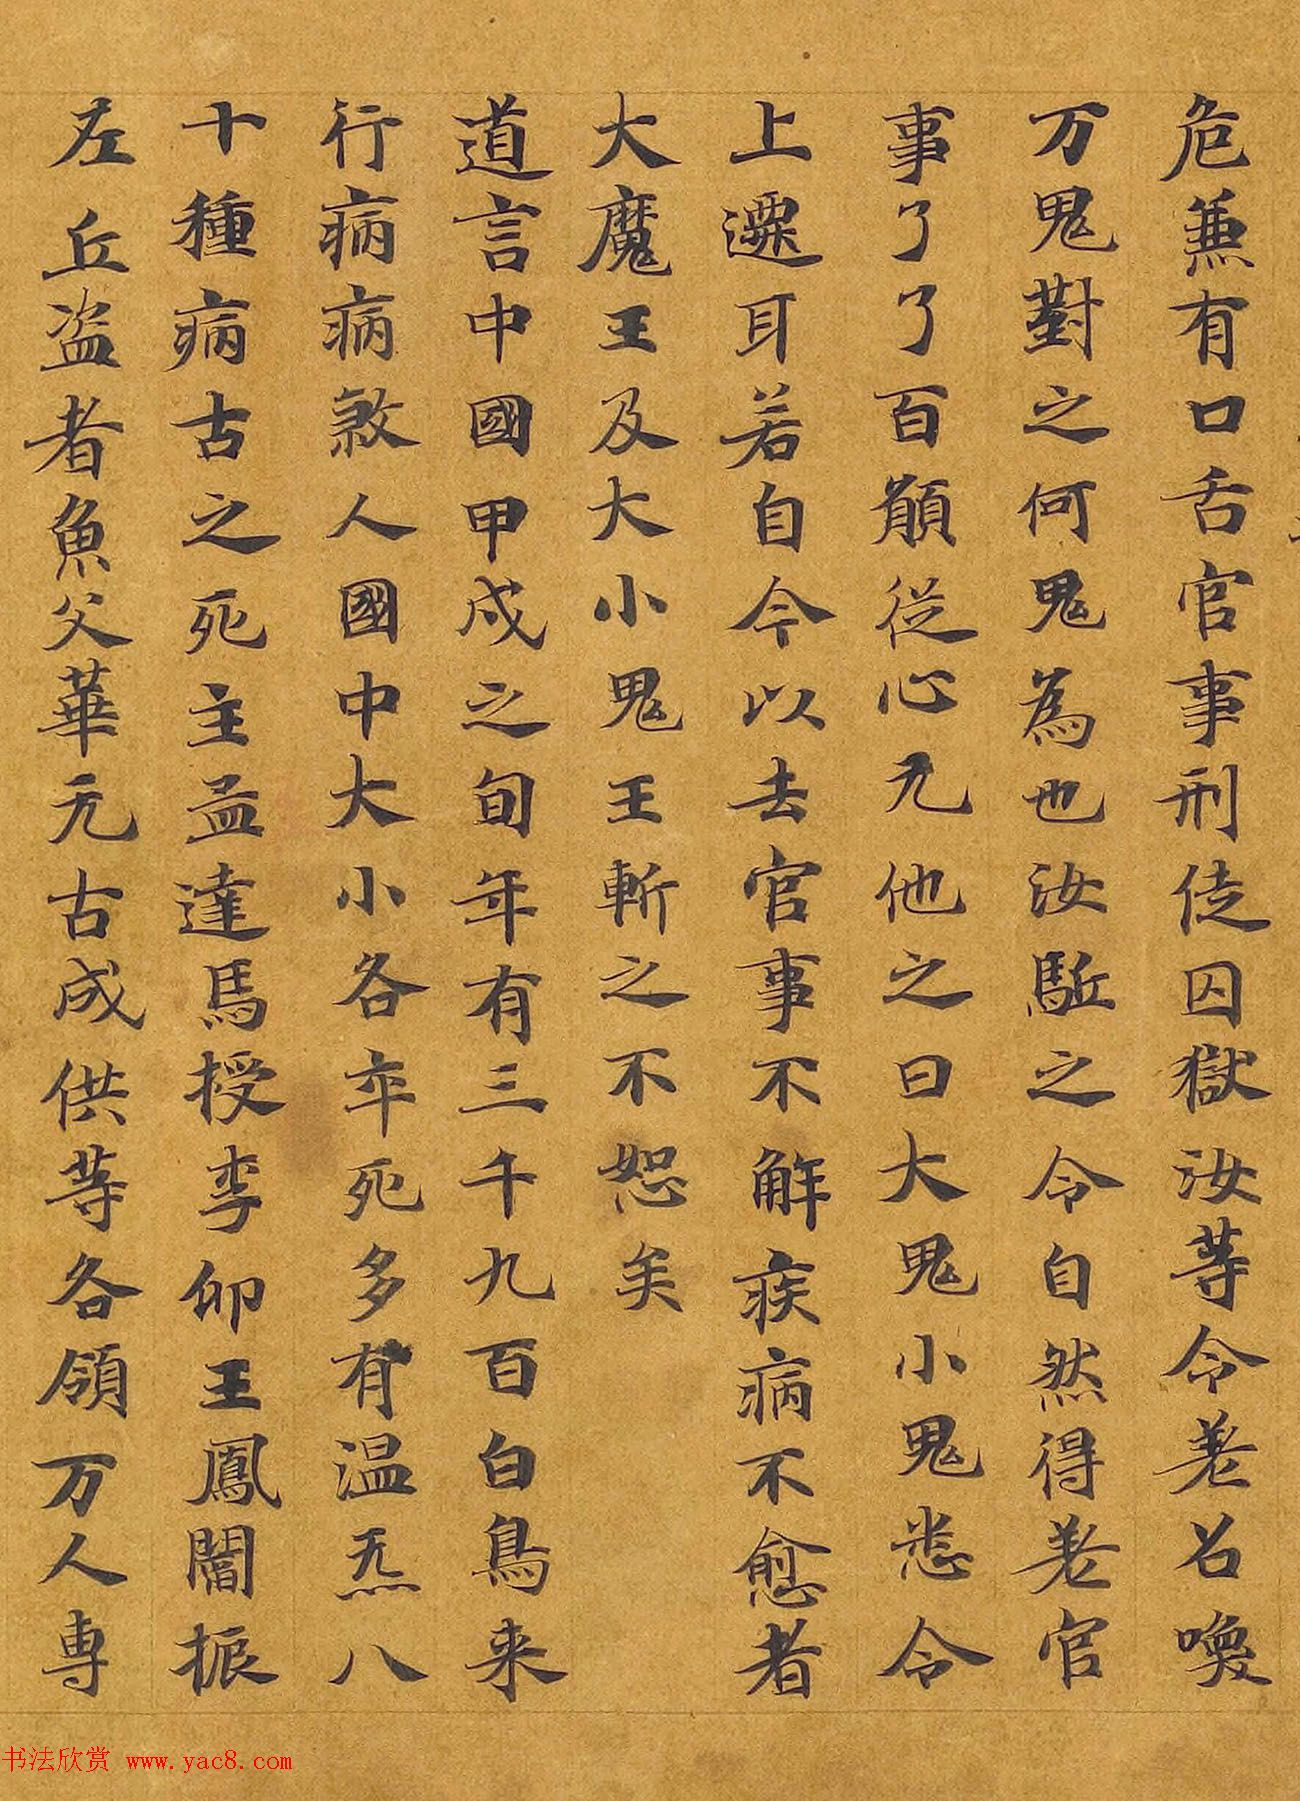 危兼有口舌官事刑徒囚獄汝等令差名喚
万鬼對之何鬼為也汝駈之令自然得差官
事了了百願從心无他之曰大鬼小鬼悉令
上遝耳若自今以去官事不解疾病不愈者
大魔王及大小鬼王斬之不恕矣
道言中國甲戌之旬年有三千九百白鳥来
行病病煞人國中大小各卒死多有温炁八
十種病古之死主孟達馬授李仰王鳳閻振
左丘盜者魚父華元古成供等各領万人專
书法欣赏 www.yac8.com